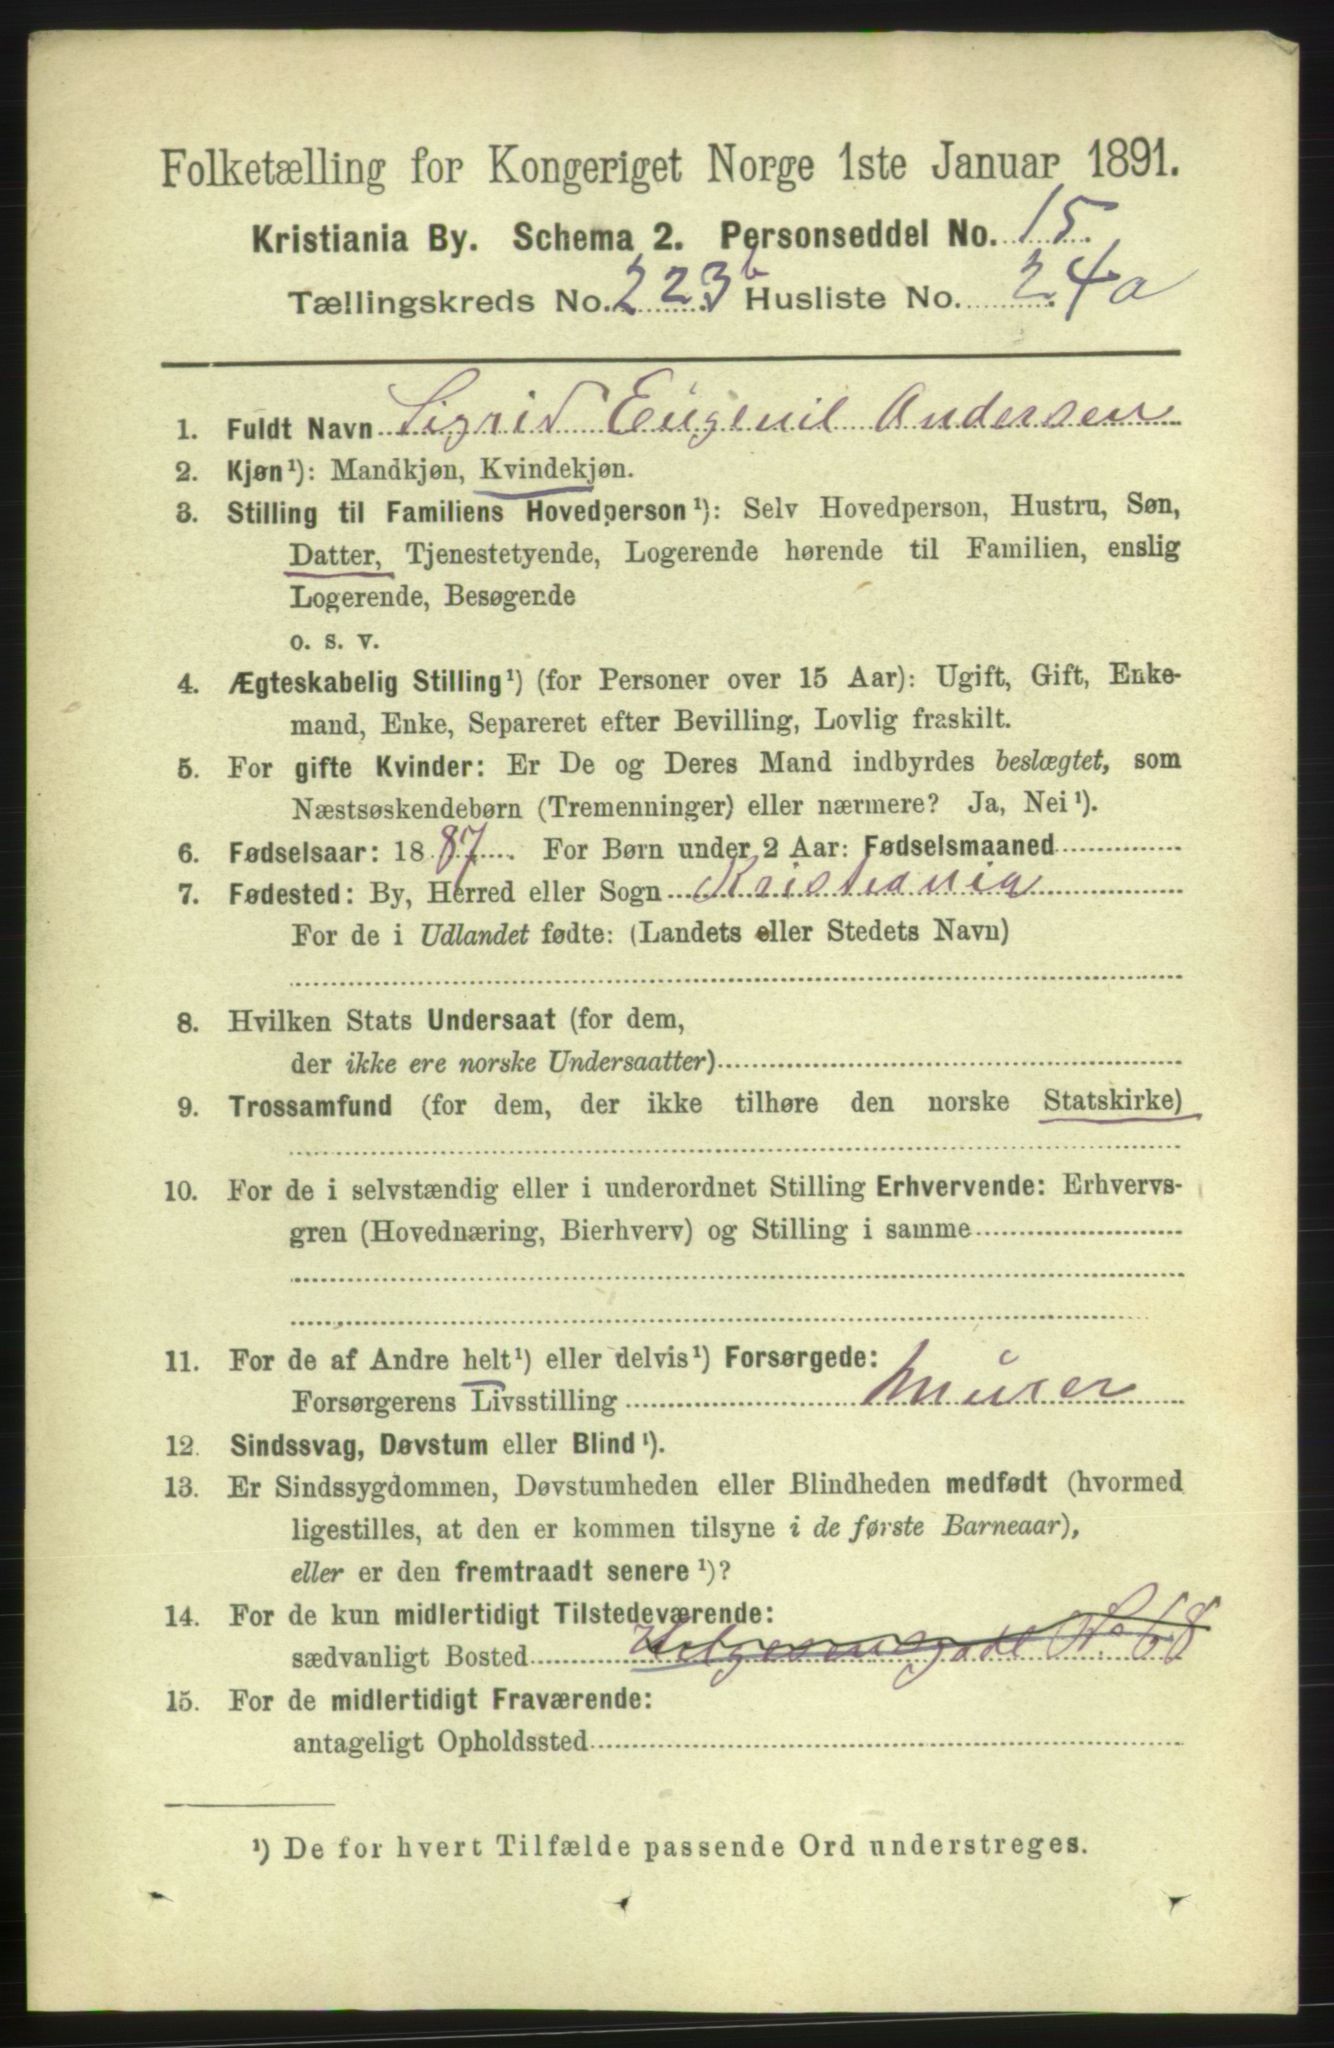 Folketælling for Kongeriget Norge 1ste Januar 1891.
Kristiania By. Schema 2. Personseddel No. 15.
Tællingskreds No. 223 b Husliste No. 24a
1. Fuldt Navn Sigrid Eugenil Andersen
2. Kjøn¹): Mandkjøn, Kvindekjøn.
3. Stilling til Familiens Hovedperson¹): Selv Hovedperson, Hustru, Søn,
Datter, Tjenestetyende, Logerende hørende til Familien, enslig
Logerende, Besøgende
o. s. v.
4. Ægteskabelig Stilling¹) (for Personer over 15 Aar): Ugift, Gift, Enke-
mand, Enke, Separeret efter Bevilling, Lovlig fraskilt.
5. For gifte Kvinder: Er De og Deres Mand indbyrdes beslægtet, som
Næstsøskendebørn (Tremenninger) eller nærmere? Ja, Nei¹).
6. Fødselsaar: 1887. For Børn under 2 Aar: Fødselsmaaned
7. Fødested: By, Herred eller Sogn Kristiania
For de i Udlandet fødte: (Landets eller Stedets Navn)
8. Hvilken Stats Undersaat (for dem,
der ikke ere norske Undersaatter)
9. Trossamfund (for dem, der ikke tilhøre den norske Statskirke)
10. For de i selvstændig eller i underordnet Stilling Erhvervende: Erhvervs-
gren (Hovednæring, Bierhverv) og Stilling i samme
11. For de af Andre helt¹) eller delvis¹) Forsørgede:
Forsørgerens Livsstilling Murer
12. Sindssvag, Døvstum eller Blind¹).
13. Er Sindssygdommen, Døvstumheden eller Blindheden medfødt (hvormed
ligestilles, at den er kommen tilsyne i de første Barneaar),
eller er den fremtraadt senere¹)?
14. For de kun midlertidigt Tilstedeværende:
sædvanligt Bosted Helgesensgade No 68
15. For de midlertidigt Fraværende:
antageligt Opholdssted
¹) De for hvert Tilfælde passende Ord understreges.